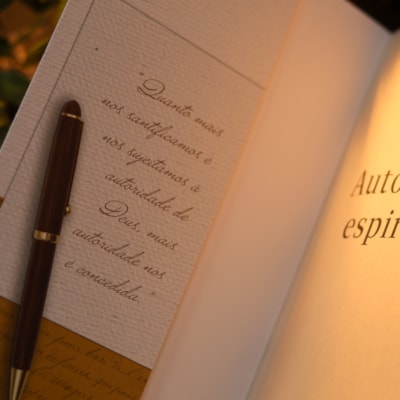 "Quanto mais
nos santificamos e
nos sujeitamos à
autoridade de
Deus, mais
autoridade nos
é concedida."
Auto
espir